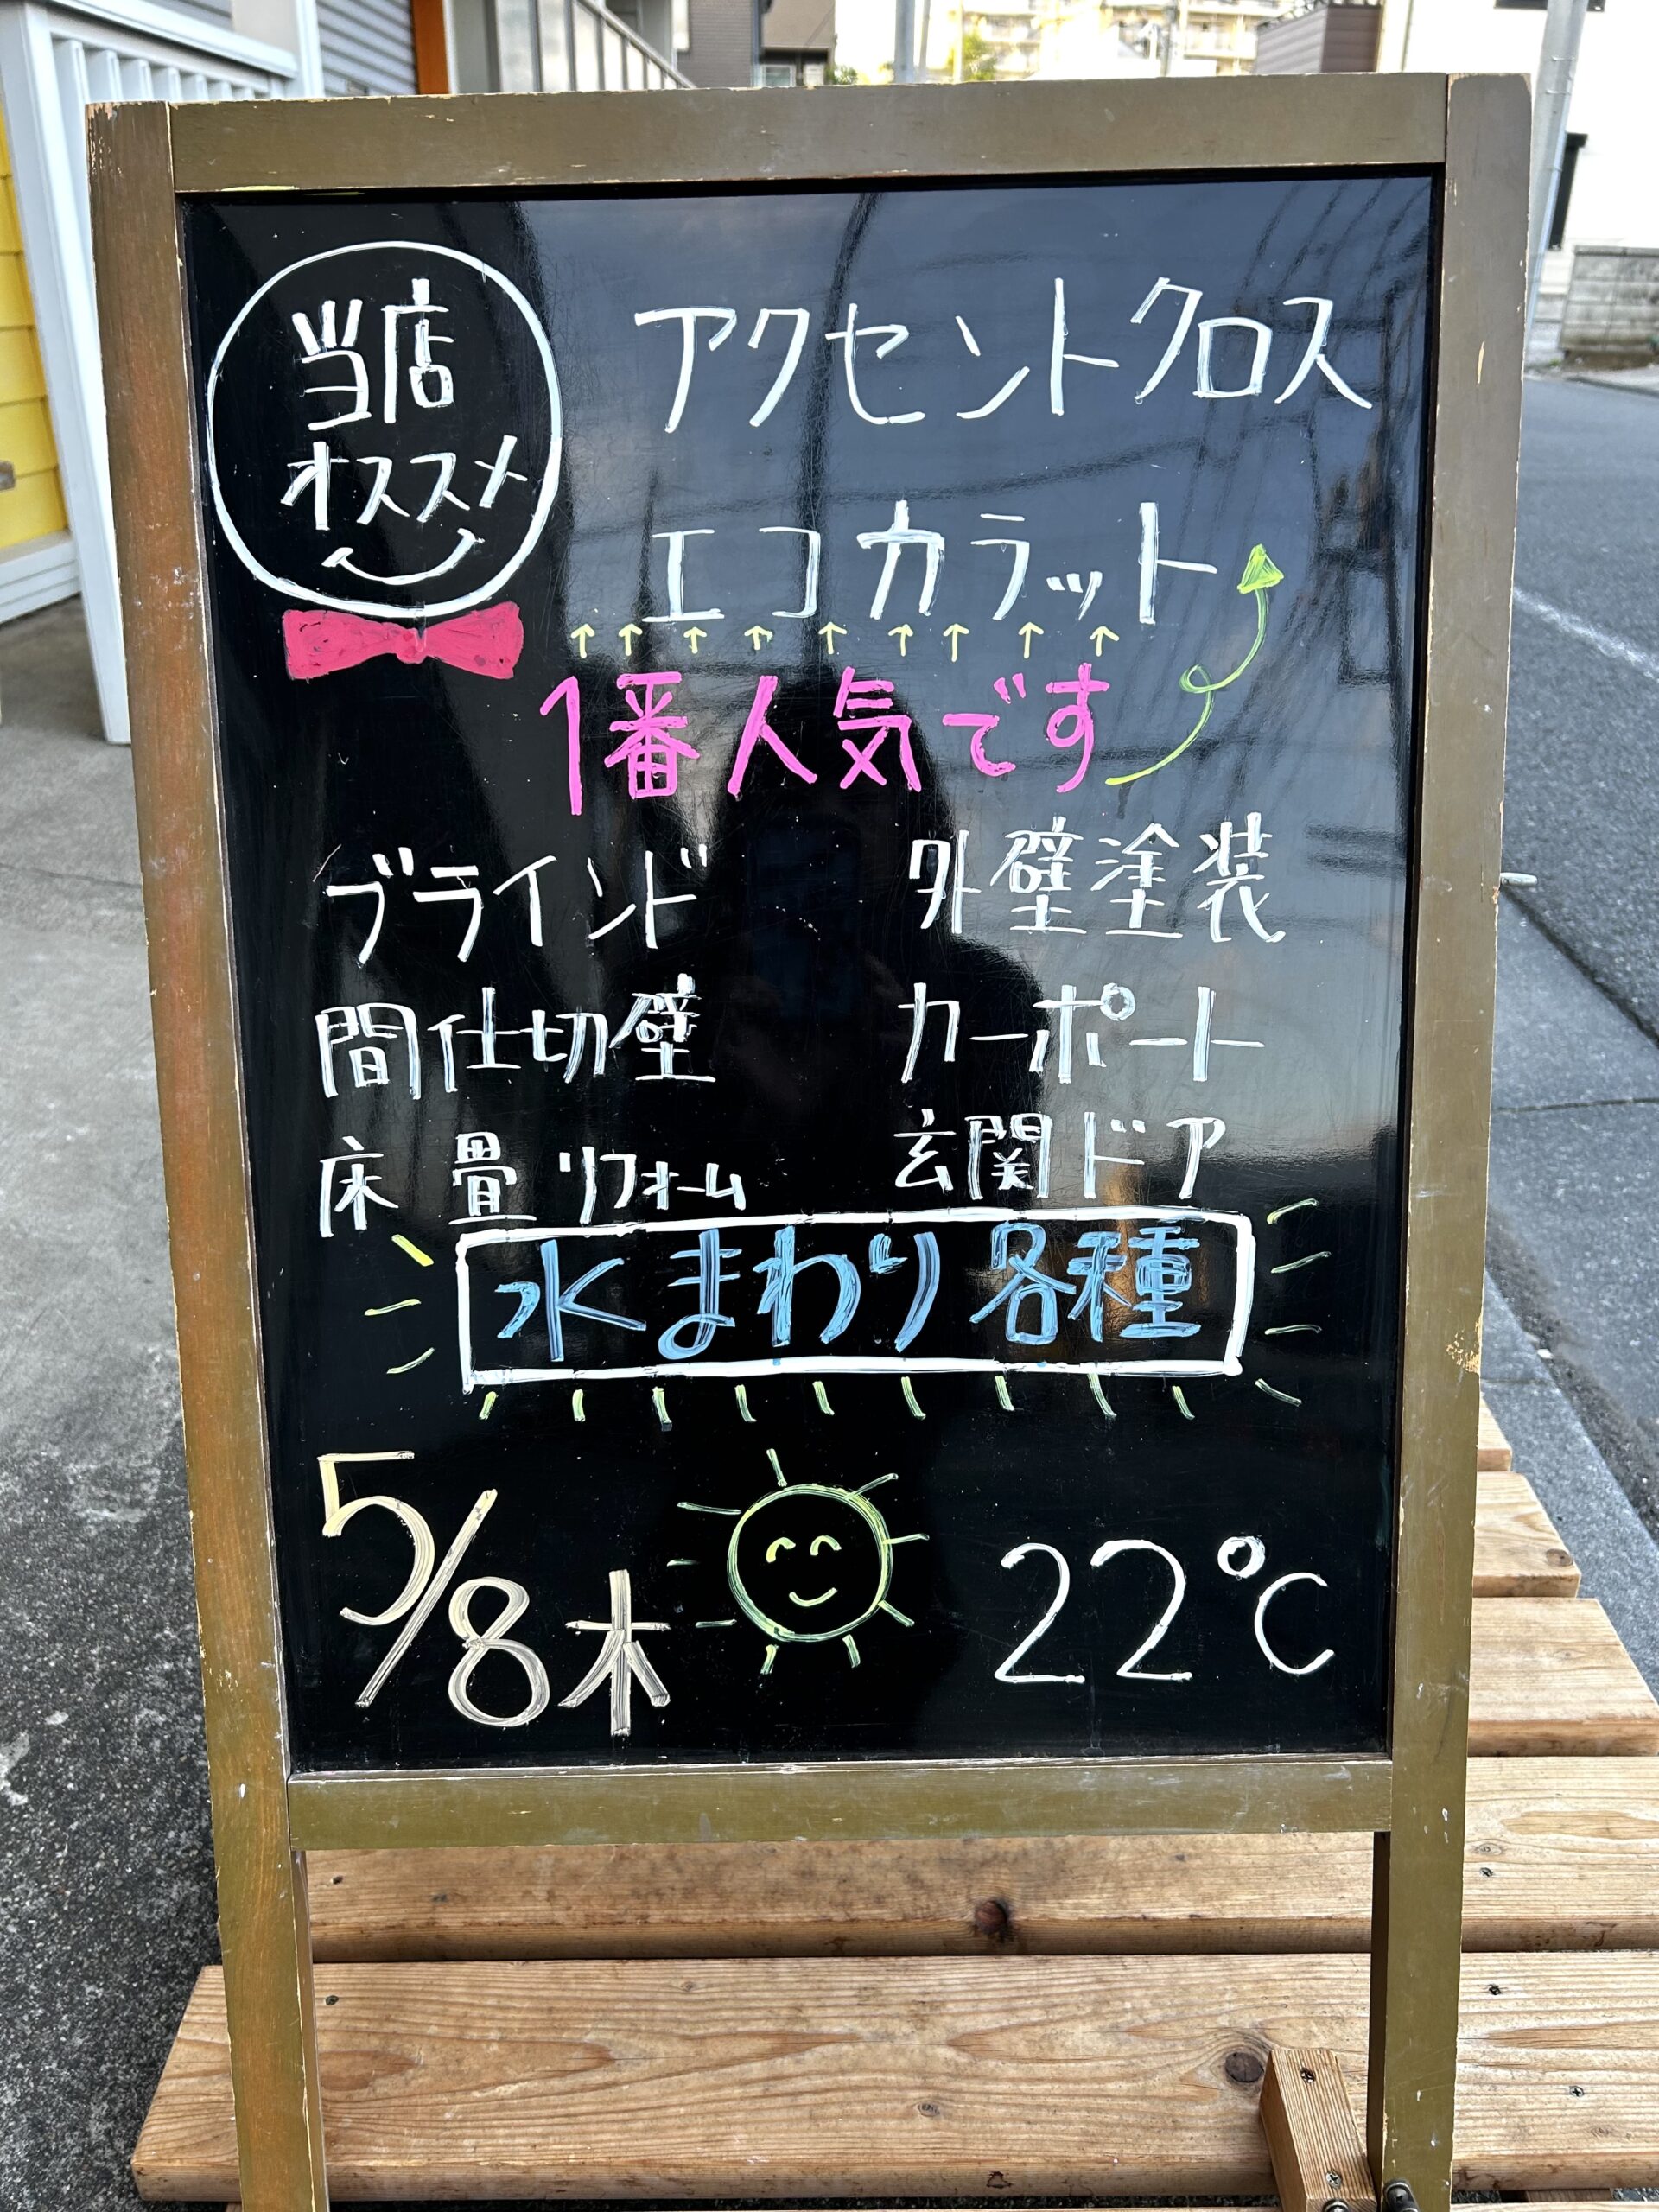 当店
オススメ
アクセントクロス
エコカラット
1番人気です
ブラインド
間仕切壁
床 畳 リフォーム
外壁塗装
カーポート
玄関ドア
水まわり各種
5/8木
22℃